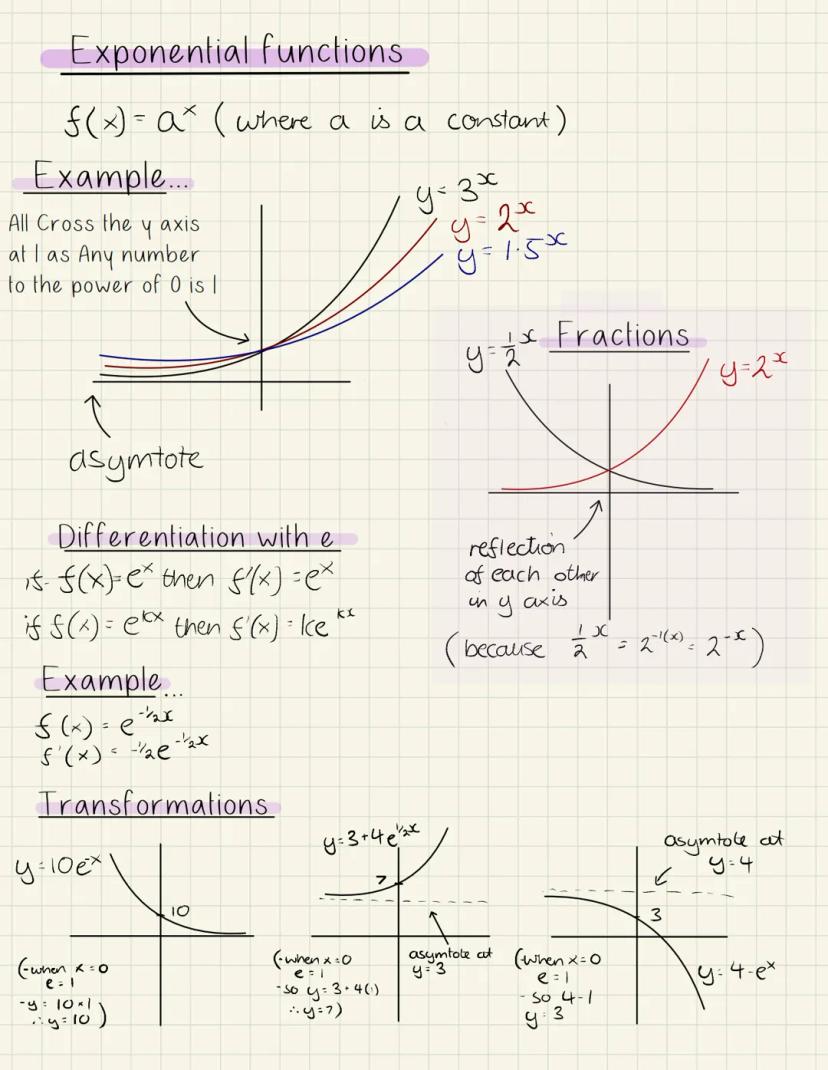 Exponential functions
f(x) = aˣ (where a is a constant)
Example...
All Cross the y axis
at 1 as Any number
to the power of 0 is 1
y = 3ˣ
y = 2ˣ
y = 1·5ˣ
asymtote
Fractions
y = ½ˣ
y = 2ˣ
reflection
of each other
in y axis
(because ½ˣ = 2⁻¹⁽ˣ⁾ = 2⁻ˣ)
Differentiation with e
if f(x) = eˣ then f'(x) = eˣ
if f(x) = eᵏˣ then f'(x) = keᵏˣ
Example...
f(x) = e^-½x
f'(x) = -½e^-½x
Transformations
y = 10e⁻ˣ
10
(-when x = 0
e = 1
-y = 10 × 1
∴ y = 10)
y = 3+4e^½x
7
asymtote at
y = 3
(-when x = 0
e = 1
-so y = 3 + 4(1)
∴ y = 7)
asymtote at
y = 4
3
y = 4 - eˣ
(-when x = 0
e = 1
- so 4 - 1
y = 3